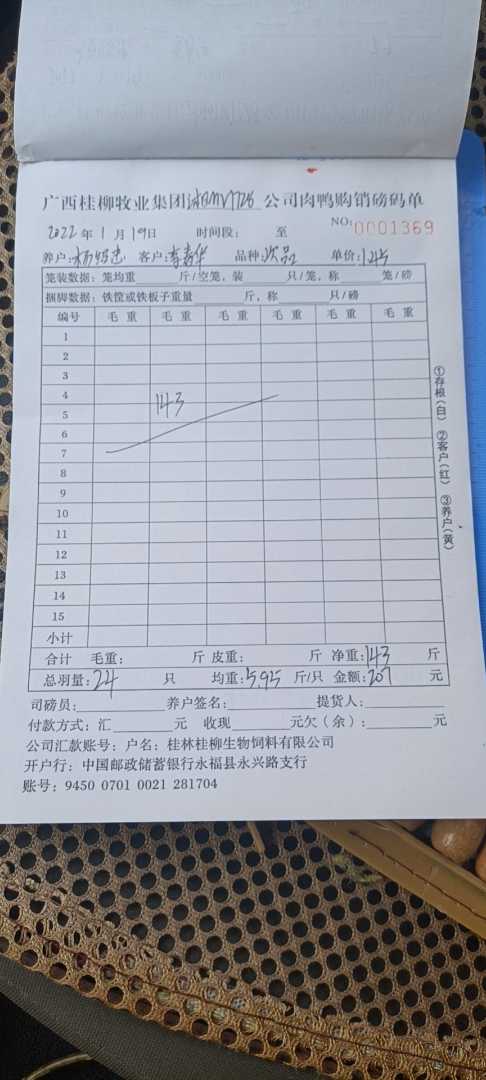 广西桂柳牧业集团 公司肉鸭购销磅码单
2022年1月19日 时间段: 至 NO:0001369
养户: 客户:李 华 品种:次品 单价:1.45
笼装数据:笼均重 斤/空笼,装 只/笼,称 笼/磅
捆脚数据:铁筐或铁板子重量 斤,称 只/磅
编号 毛重 毛重 毛重 毛重 毛重 毛重
1
2
3
4
143
5
6
7
8
9
10
11
12
13
14
15
小计
合计 毛重: 斤 皮重: 斤 净重:143 斤
总羽量:24 只 均重:5.95 斤/只 金额:207 元
司磅员: 养户签名: 提货人:
付款方式:汇 元 收现 元欠(余): 元
公司汇款账号:户名:桂林桂柳生物饲料有限公司
开户行:中国邮政储蓄银行永福县永兴路支行
账号:9450 0701 0021 281704
①存根(白) ②客户(红) ③养户(黄)